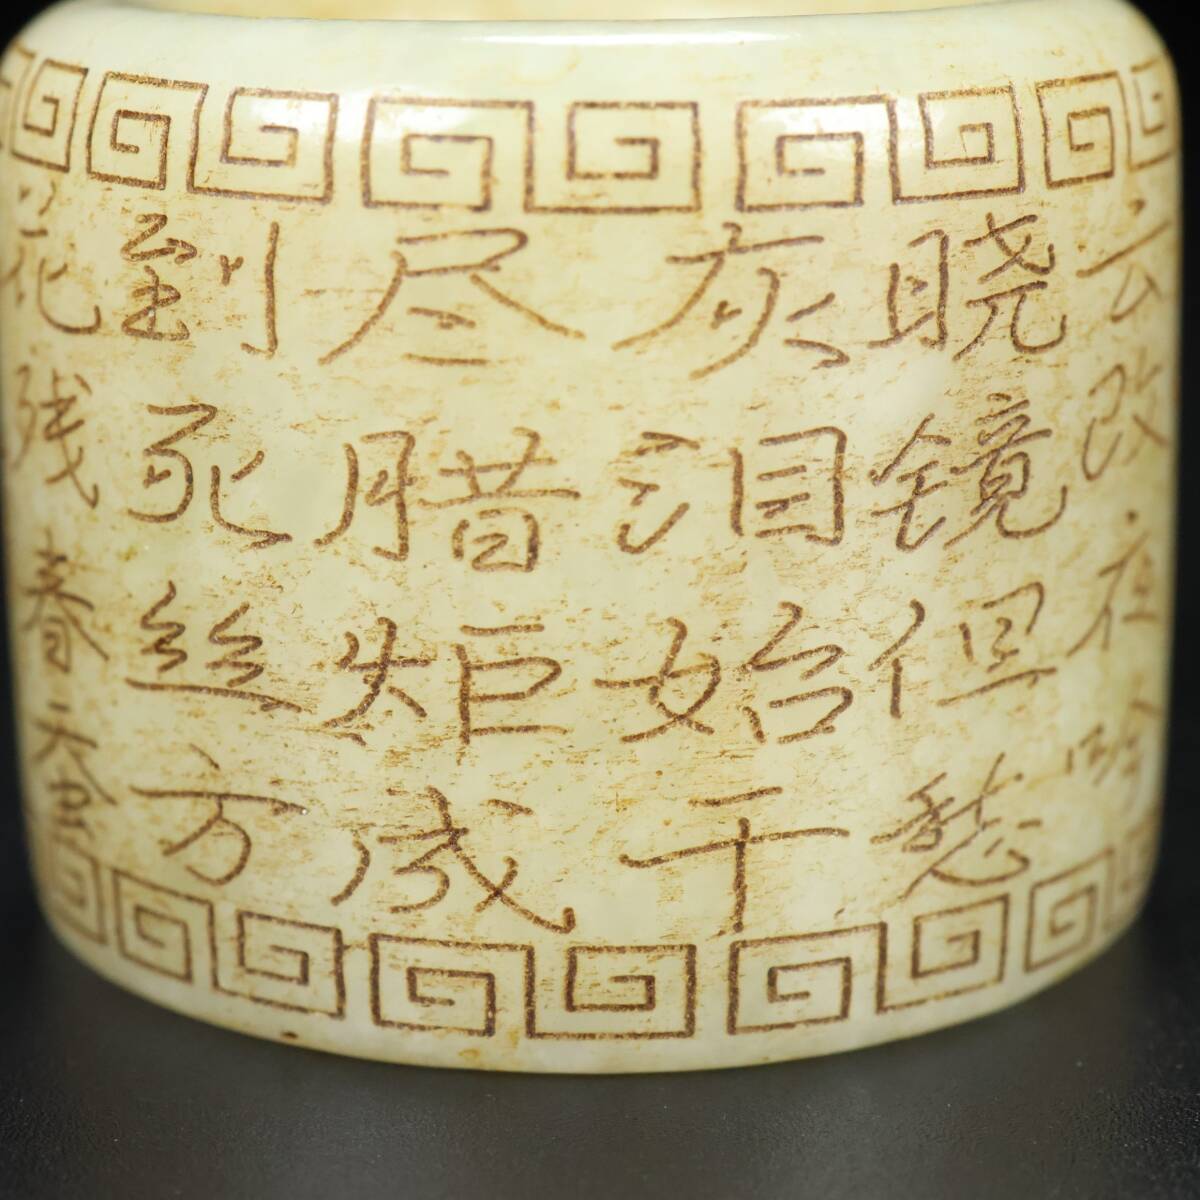 花残春蚕
到死丝方
尽腊炬成
灰泪始干
晓镜但愁
云改夜吟